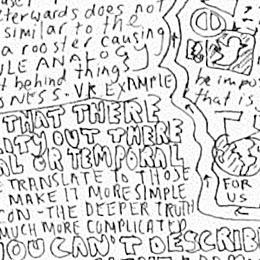 terwards does not
similar to the
a rooster causing
ULE ANALOGY
t behind things
NESS. VR EXAMPLE
THAT THERE
LITY OUT THERE
AL OR TEMPORAL
TRANSLATE TO THOSE
MAKE IT MORE SIMPLE
CON - THE DEEPER TRUTH
MUCH MORE COMPLICATED
YOU CAN'T DESCRIB
be impos
that is
FOR
US